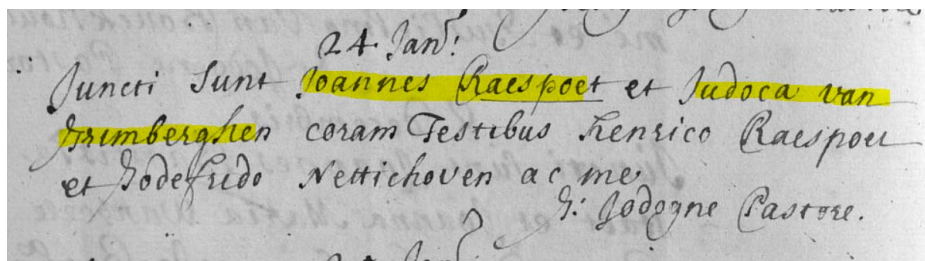 24 Jan:
Juncti sunt Joannes Raespoet et Judoca van
Grimberghen coram Testibus Henrico Raespoet
et Godefrido Nettichoven ac me
G: Jodogne Pastore.